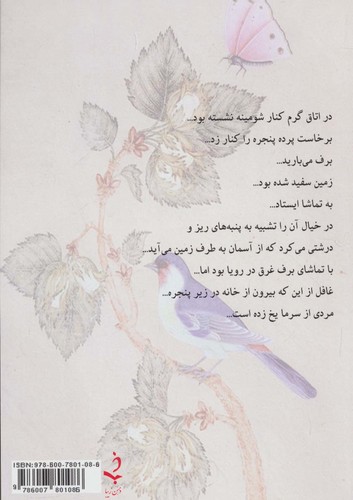 در اتاق گرم کنار شومینه نشسته بود...
برخاست پرده پنجره را کنار زد...
برف می‌بارید...
زمین سفید شده بود...
به تماشا ایستاد...
در خیال آن را تشبیه به پنبه‌های ریز و
درشتی می‌کرد که از آسمان به طرف زمین می‌آید...
با تماشای برف غرق در رویا بود اما...
غافل از این که بیرون از خانه در زیر پنجره...
مردی از سرما یخ زده است...
ISBN: 978-600-7801-08-6